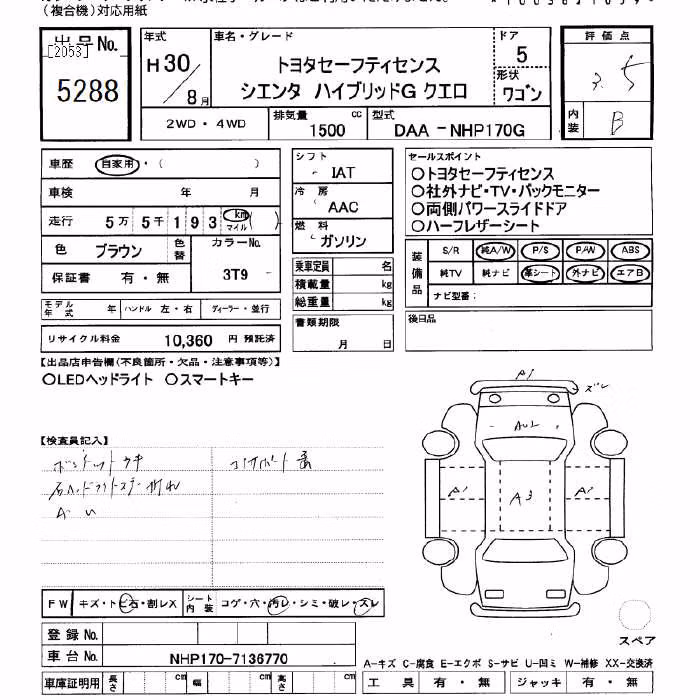 （複合機）対応用紙
出品No.
[2053]
5288
年式
H30/8月
車名・グレード
トヨタセーフティセンス
シエンタ ハイブリッドG クエロ
ドア
5
形状
ワゴン
評価点
3.5
内装
B
2WD・4WD
排気量
1500 cc
型式
DAA－NHP170G
車歴
自家用・（　　）
車検　年　月
走行 5万5千193 km マイル
色 ブラウン
色替
カラーNo.
3T9
保証書 有・無
モデル年式　年
ハンドル 左・右
ディーラー・並行
リサイクル料金 10,360 円 預託済
シフト
IAT
冷房
AAC
燃料
ガソリン
乗車定員　名
積載量　kg
総重量　kg
書類期限
月　日
セールスポイント
○トヨタセーフティセンス
○社外ナビ・TV・バックモニター
○両側パワースライドドア
○ハーフレザーシート
装備品
S/R 純A/W P/S P/W ABS
純TV 純ナビ 革シート 外ナビ エアB
ナビ型番：
後日品
【出品店申告欄(不良箇所・欠品・注意事項等)】
○LEDヘッドライト ○スマートキー
【検査員記入】
A1
ズレ
A1
A3
FW キズ・トビ石・割レX
シート内装 コゲ・穴・汚レ・シミ・破レ・スレ
登録No.
車台No. NHP170-7136770
車庫証明用 長さ cm 幅 cm 高さ cm
スペア
A-キズ C-腐食 E-エクボ S-サビ U-凹ミ W-補修 XX-交換済
工具 有・無 ジャッキ 有・無